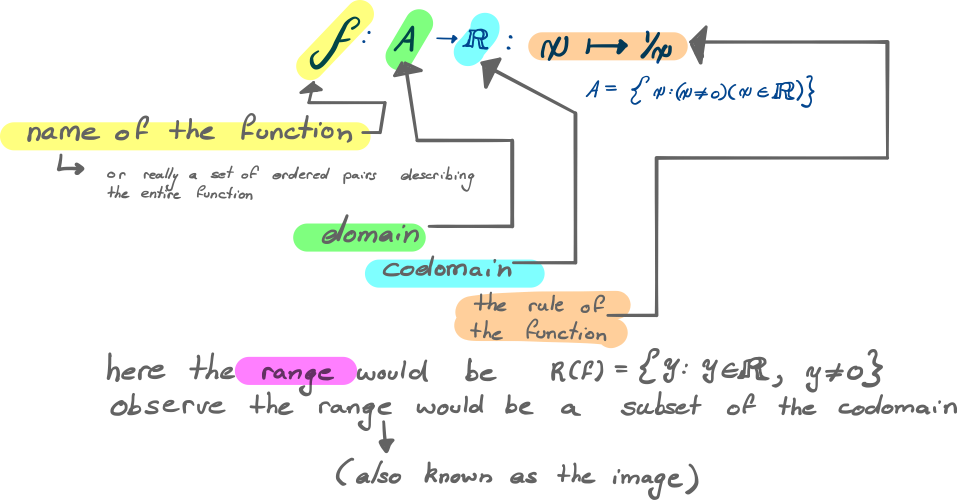 f: A → ℝ : x ↦ 1/x
A = { x : (x ≠ 0)(x ∈ ℝ)}
name of the function
or really a set of ordered pairs describing
the entire function
domain
codomain
the rule of
the function
here the range would be R(f) = {y: y ∈ ℝ, y ≠ 0}
observe the range would be a subset of the codomain
(also known as the image)